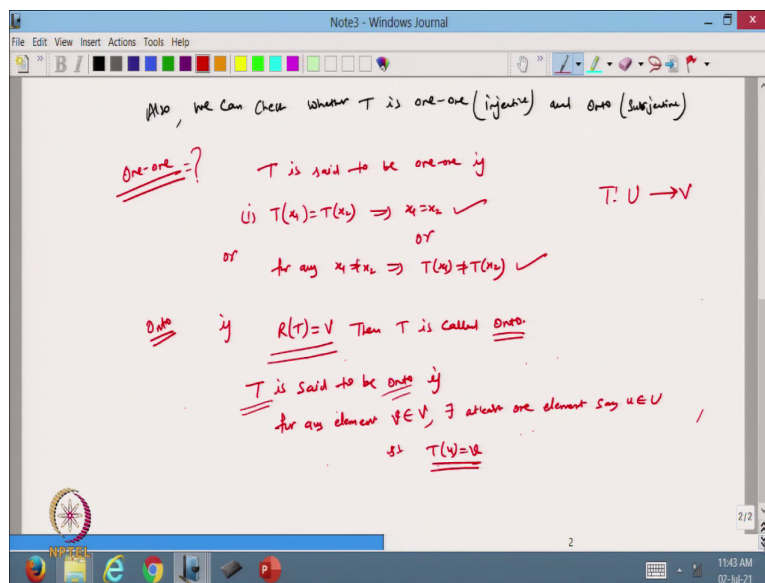 Note3 - Windows Journal
File Edit View Insert Actions Tools Help
B I
Also, we can check whether T is one-one (injective) and onto (surjective)
one-one = ?
T is said to be one-one if
T: U → V
(i) T(x₁) = T(x₂) ⇒ x₁ = x₂ ✓
or
or
for any x₁ ≠ x₂ ⇒ T(x₁) ≠ T(x₂) ✓
Onto if R(T) = V Then T is called onto.
T is said to be onto if
for any element v ∈ V, ∃ atleast one element say u ∈ U,
st T(u) = v
2/2
2
NPTEL
11:43 AM
02-Jul-21